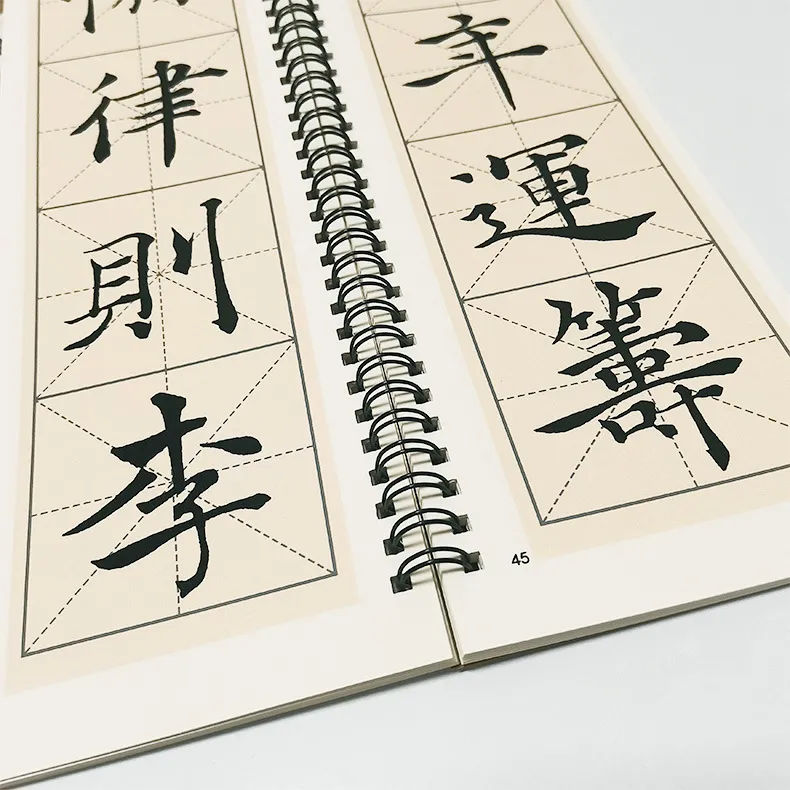 律則李
年運籌
45